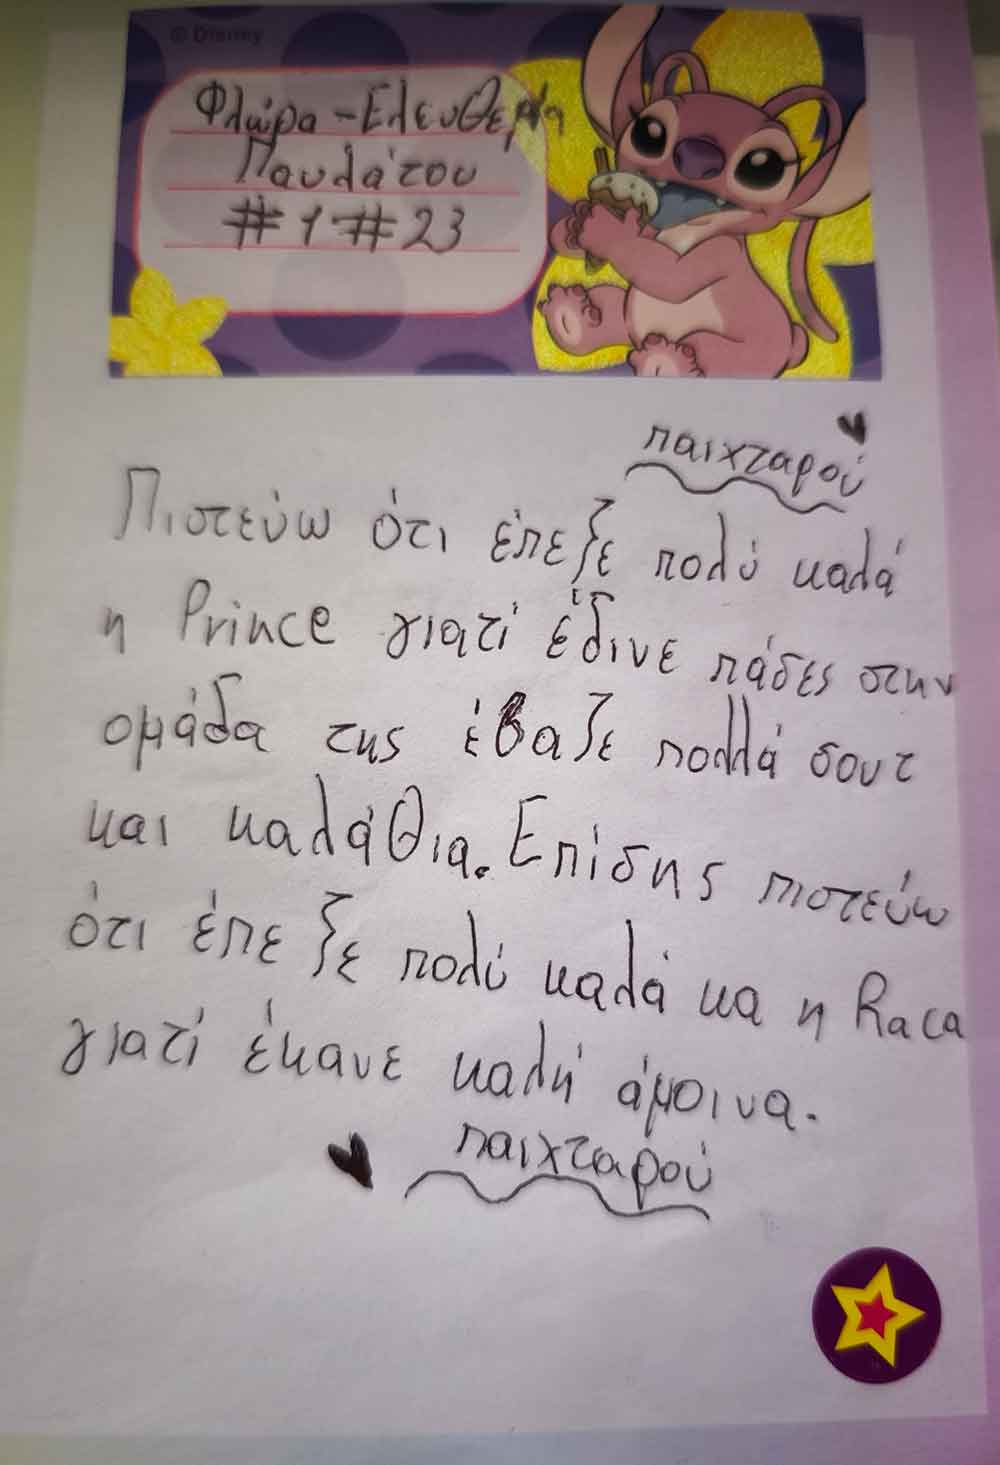 © Disney
Φλώρα - Ελευθερία
Παυλάτου
#1 #23
παιχταρού
Πιστεύω ότι έπεξε πολύ καλά
η Prince γιατί έδινε πάσες στην
ομάδα της έβαζε πολλά σουτ
και καλάθια. Επίσης πιστεύω
ότι έπεξε πολύ καλά κα η Raca
γιατί έκανε καλή άμοινα.
παιχταρού